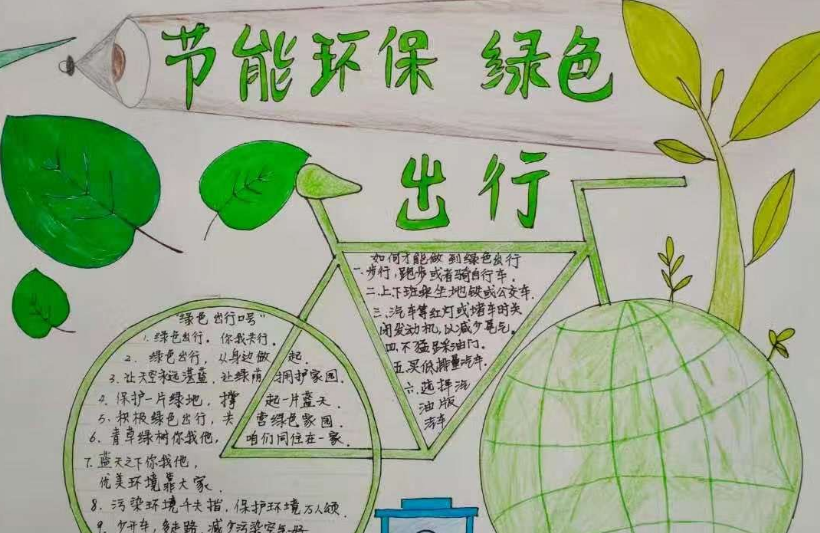 节能环保 绿色
出行
如何才能做到绿色出行
一.步行,跑步或者骑自行车.
二.上下班乘坐地铁或公交车.
三.汽车等红灯或堵车时关
闭发动机,以减少尾气.
四.不猛踩油门.
五.买低排量汽车.
六.选择汽
油版
汽车
"绿色出行口号"
1.绿色出行,你我先行.
2.绿色出行,从身边做起.
3.让天空永远湛蓝,让绿荫拥护家园.
4.保护一片绿地,撑起一片蓝天.
5.积极绿色出行,共营绿色家园.
6.青草绿树你我他,咱们同住在一家.
7.蓝天之下你我他,
优美环境靠大家.
8.污染环境千夫指,保护环境万人颂.
9.少开车,多走路,减少污染空气好